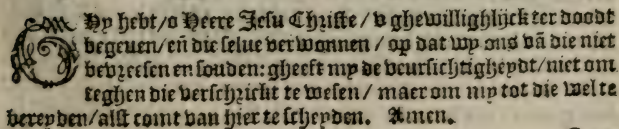 GHy hebt/o Heere Jesu Christe/ v ghewillighlijck ter doodt
begeuen/eñ die selue verwonnen / op dat wy ons vā die niet
bevreesen en souden: gheeft my de veursichtigheydt/niet om
teghen die verschrickt te wesen / maer om my tot die wel te
bereyden/alst comt van hier te scheyden. Amen.